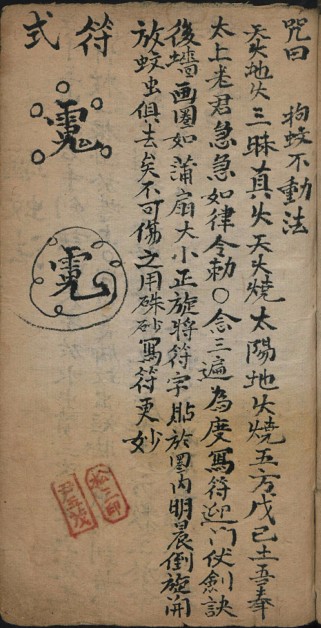 咒曰　拘蚊不動法
天火地火三昧真火天火燒太陽地火燒五方戊己土吾奉
太上老君急急如律令勅〇念三遍為度寫符迎門伏劍訣
後墻画圈如蒲扇大小正旋將符字貼於圈內明晨倒旋開
放蚊虫俱去矣不可傷之用硃砂寫符更妙
符式